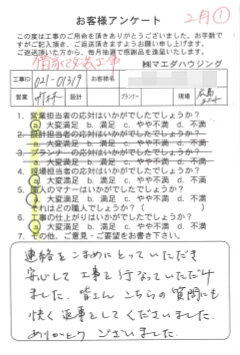 2月①
お客様アンケート
この度は工事のご用命を頂きありがとうございました。お手数で
すがご記入頂き、ご返送頂きますようお願い申し上げます。
ご返送頂いた方から、毎月抽選で感謝品を進呈いたします。
工事ID 021-01319 お客様名 ㈱マエダハウジング
営業 プランナー 現場
1. 営業担当者の応対はいかがでしたでしょうか?
a. 大変満足 b. 満足 c. やや不満 d. 不満
2. 設計担当者の応対はいかがでしたでしょうか?
a. 大変満足 b. 満足 c. やや不満 d. 不満
3. プランナーの応対はいかがでしたでしょうか?
a. 大変満足 b. 満足 c. やや不満 d. 不満
4. 現場担当者の応対はいかがでしたでしょうか?
a. 大変満足 b. 満足 c. やや不満 d. 不満
5. 職人のマナーはいかがでしたでしょうか?
a. 大変満足 b. 満足 c. やや不満 d. 不満
それはどの職人でしょうか? ( )
6. 工事の仕上がりはいかがでしたでしょうか?
a. 大変満足 b. 満足 c. やや不満 d. 不満
7. その他、ご意見・ご要望をお書き下さい。
連絡をこまめにとっていただき
安心して工事を行なっていただけ
ました。皆さん こちらの質問にも
快く返事をしてくださいました。
ありがとう ございました。